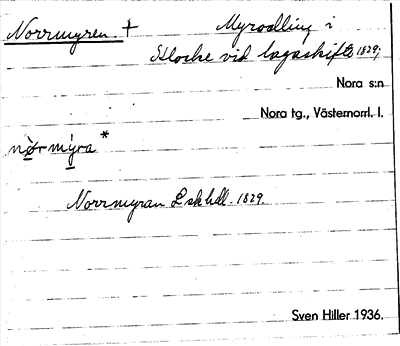 Norrmyren. † Myrodling i
Klocke vid lagaskifte 1829;
Nora s:n
Nora tg., Västernorrl. l.
nòrmýra *
Norrmyran L skhdl. 1829.
Sven Hiller 1936.